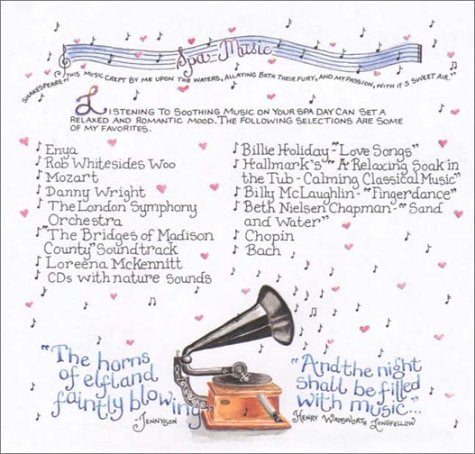 Spa-Music
Shakespeare "This music crept by me upon the waters, allaying both their fury, and my passion, with it's sweet air."
Listening to soothing music on your spa day can set a
relaxed and romantic mood. The following selections are some
of my favorites.
Enya
Rob Whitesides Woo
Mozart
Danny Wright
The London Symphony
Orchestra
"The Bridges of Madison
County" Soundtrack
Loreena McKennitt
CDs with nature sounds
Billie Holiday-"Love Songs"
Hallmark's "A Relaxing Soak in
the Tub - Calming Classical Music"
Billy McLaughlin-"Fingerdance"
Beth Nielsen Chapman-"Sand
and Water"
Chopin
Bach
"The horns
of elfland
faintly blowing"
Jennyson
"And the night
shall be filled
with music..."
Henry Wadsworth Longfellow